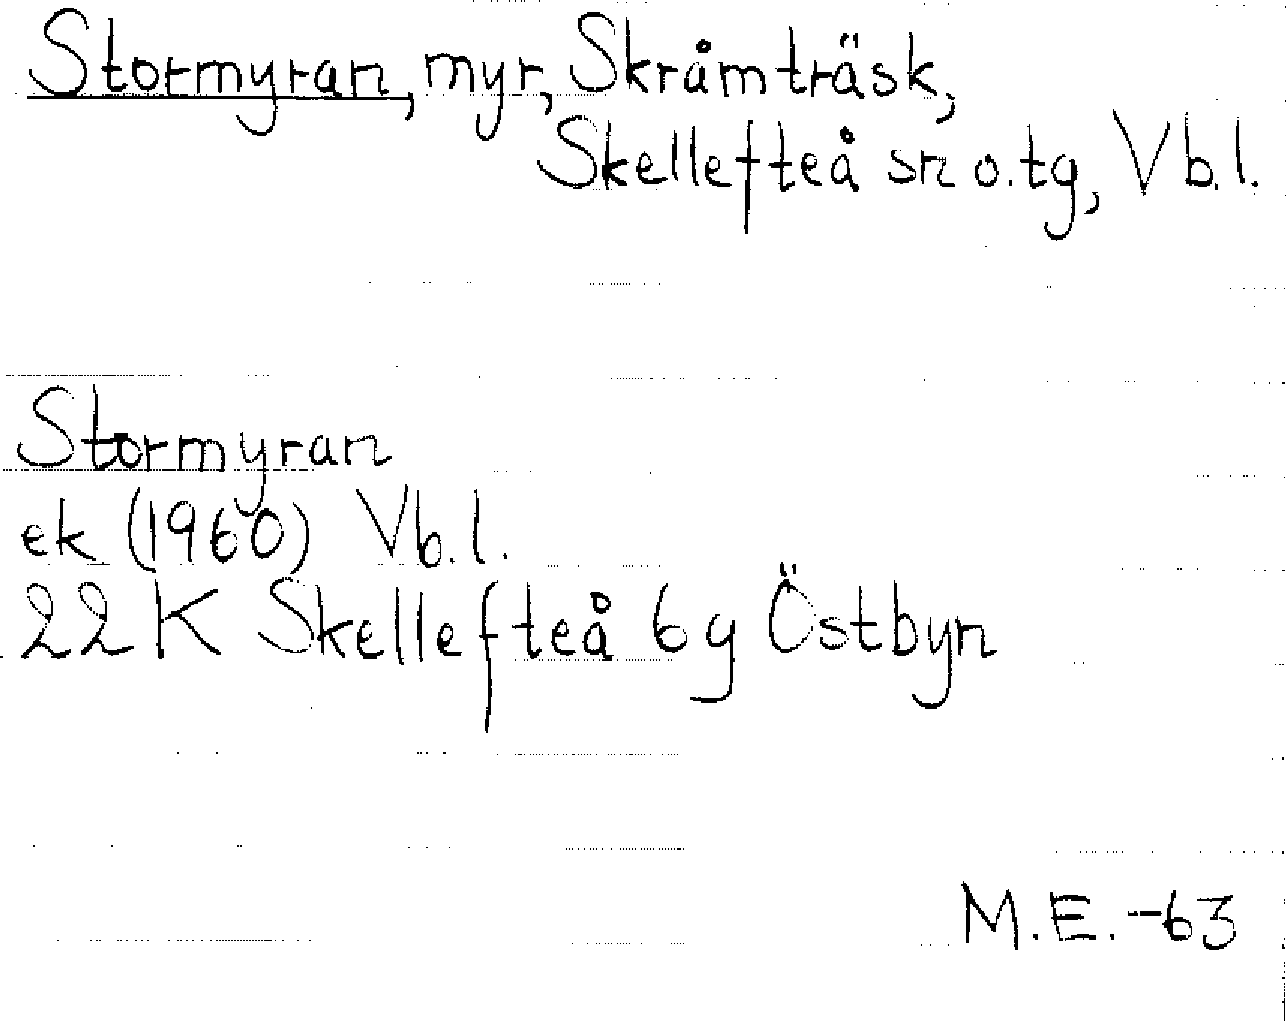 Stormyran, myr, Skråmträsk,
Skellefteå sn o. tg, Vb. l.
Stormyran
ek (1960) Vb. l.
22 K Skellefteå 6 g Östbyn
M.E. -63